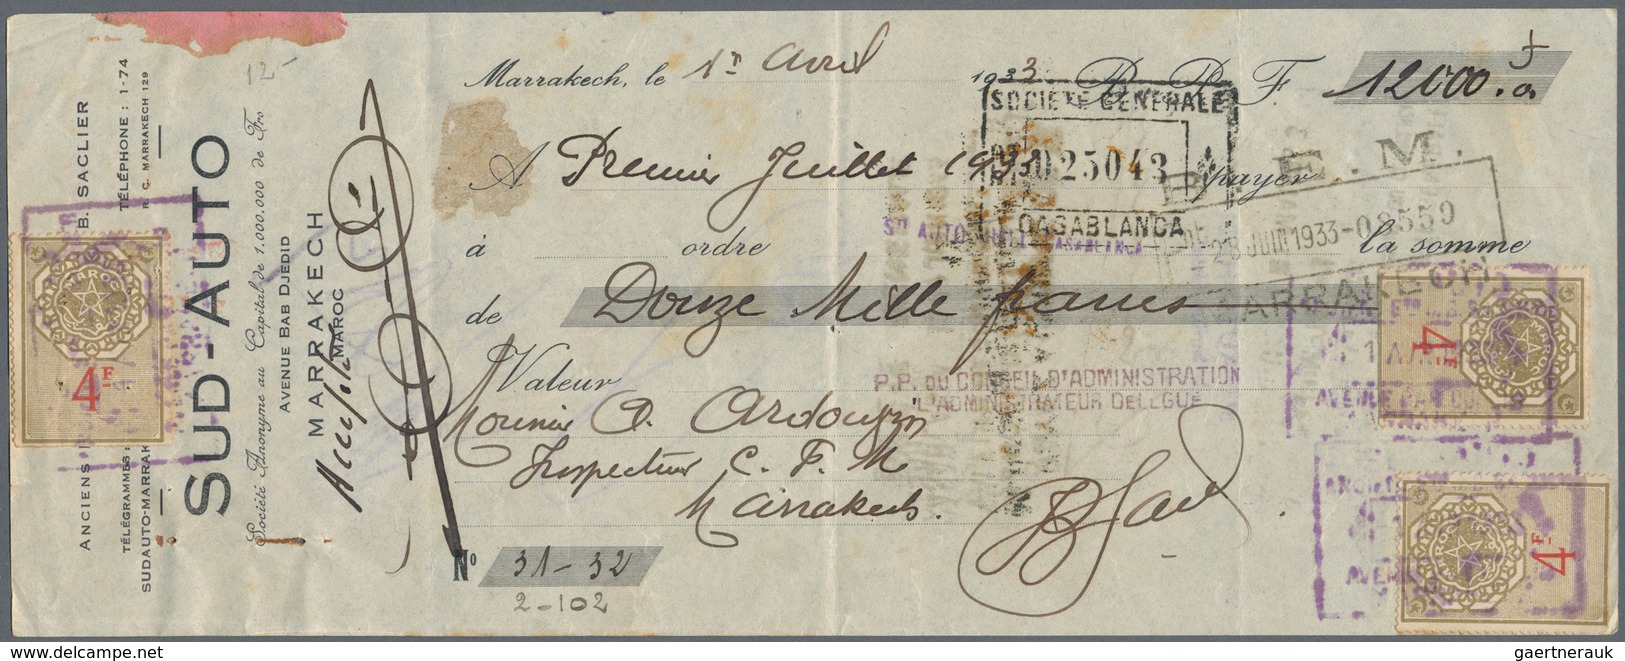 ANCIENS B. SACLIER
TÉLÉGRAMMES: TÉLÉPHONE : 1-74
SUDAUTO-MARRAK R. C. MARRAKECH 129
SUD-AUTO
Société Anonyme au Capital de 1.000.000 de Frs
AVENUE BAB DJEDID
MARRAKECH
MAROC
MAROC
4F
12-
Marrakech, le 1er Avril 1933 B. P. F. 12000.
SOCIETE GENERALE
025043
CASABLANCA
E. M.
A Premier Juillet 1933 payer
28 JUIN 1933-08559
MARRAKECH
à ordre la somme
Sté AUTO CASABLANCA
de Douze Mille francs
Valeur
P.P. DU CONSEIL D'ADMINISTRATION
L'ADMINISTRATEUR DELEGUE
Monsieur A. Ardouyn
Inspecteur C. F. M
Marrakech.
No 31-32
2-102
MAROC
4F
AVENUE BAB
MAROC
4F
gaertnerauk